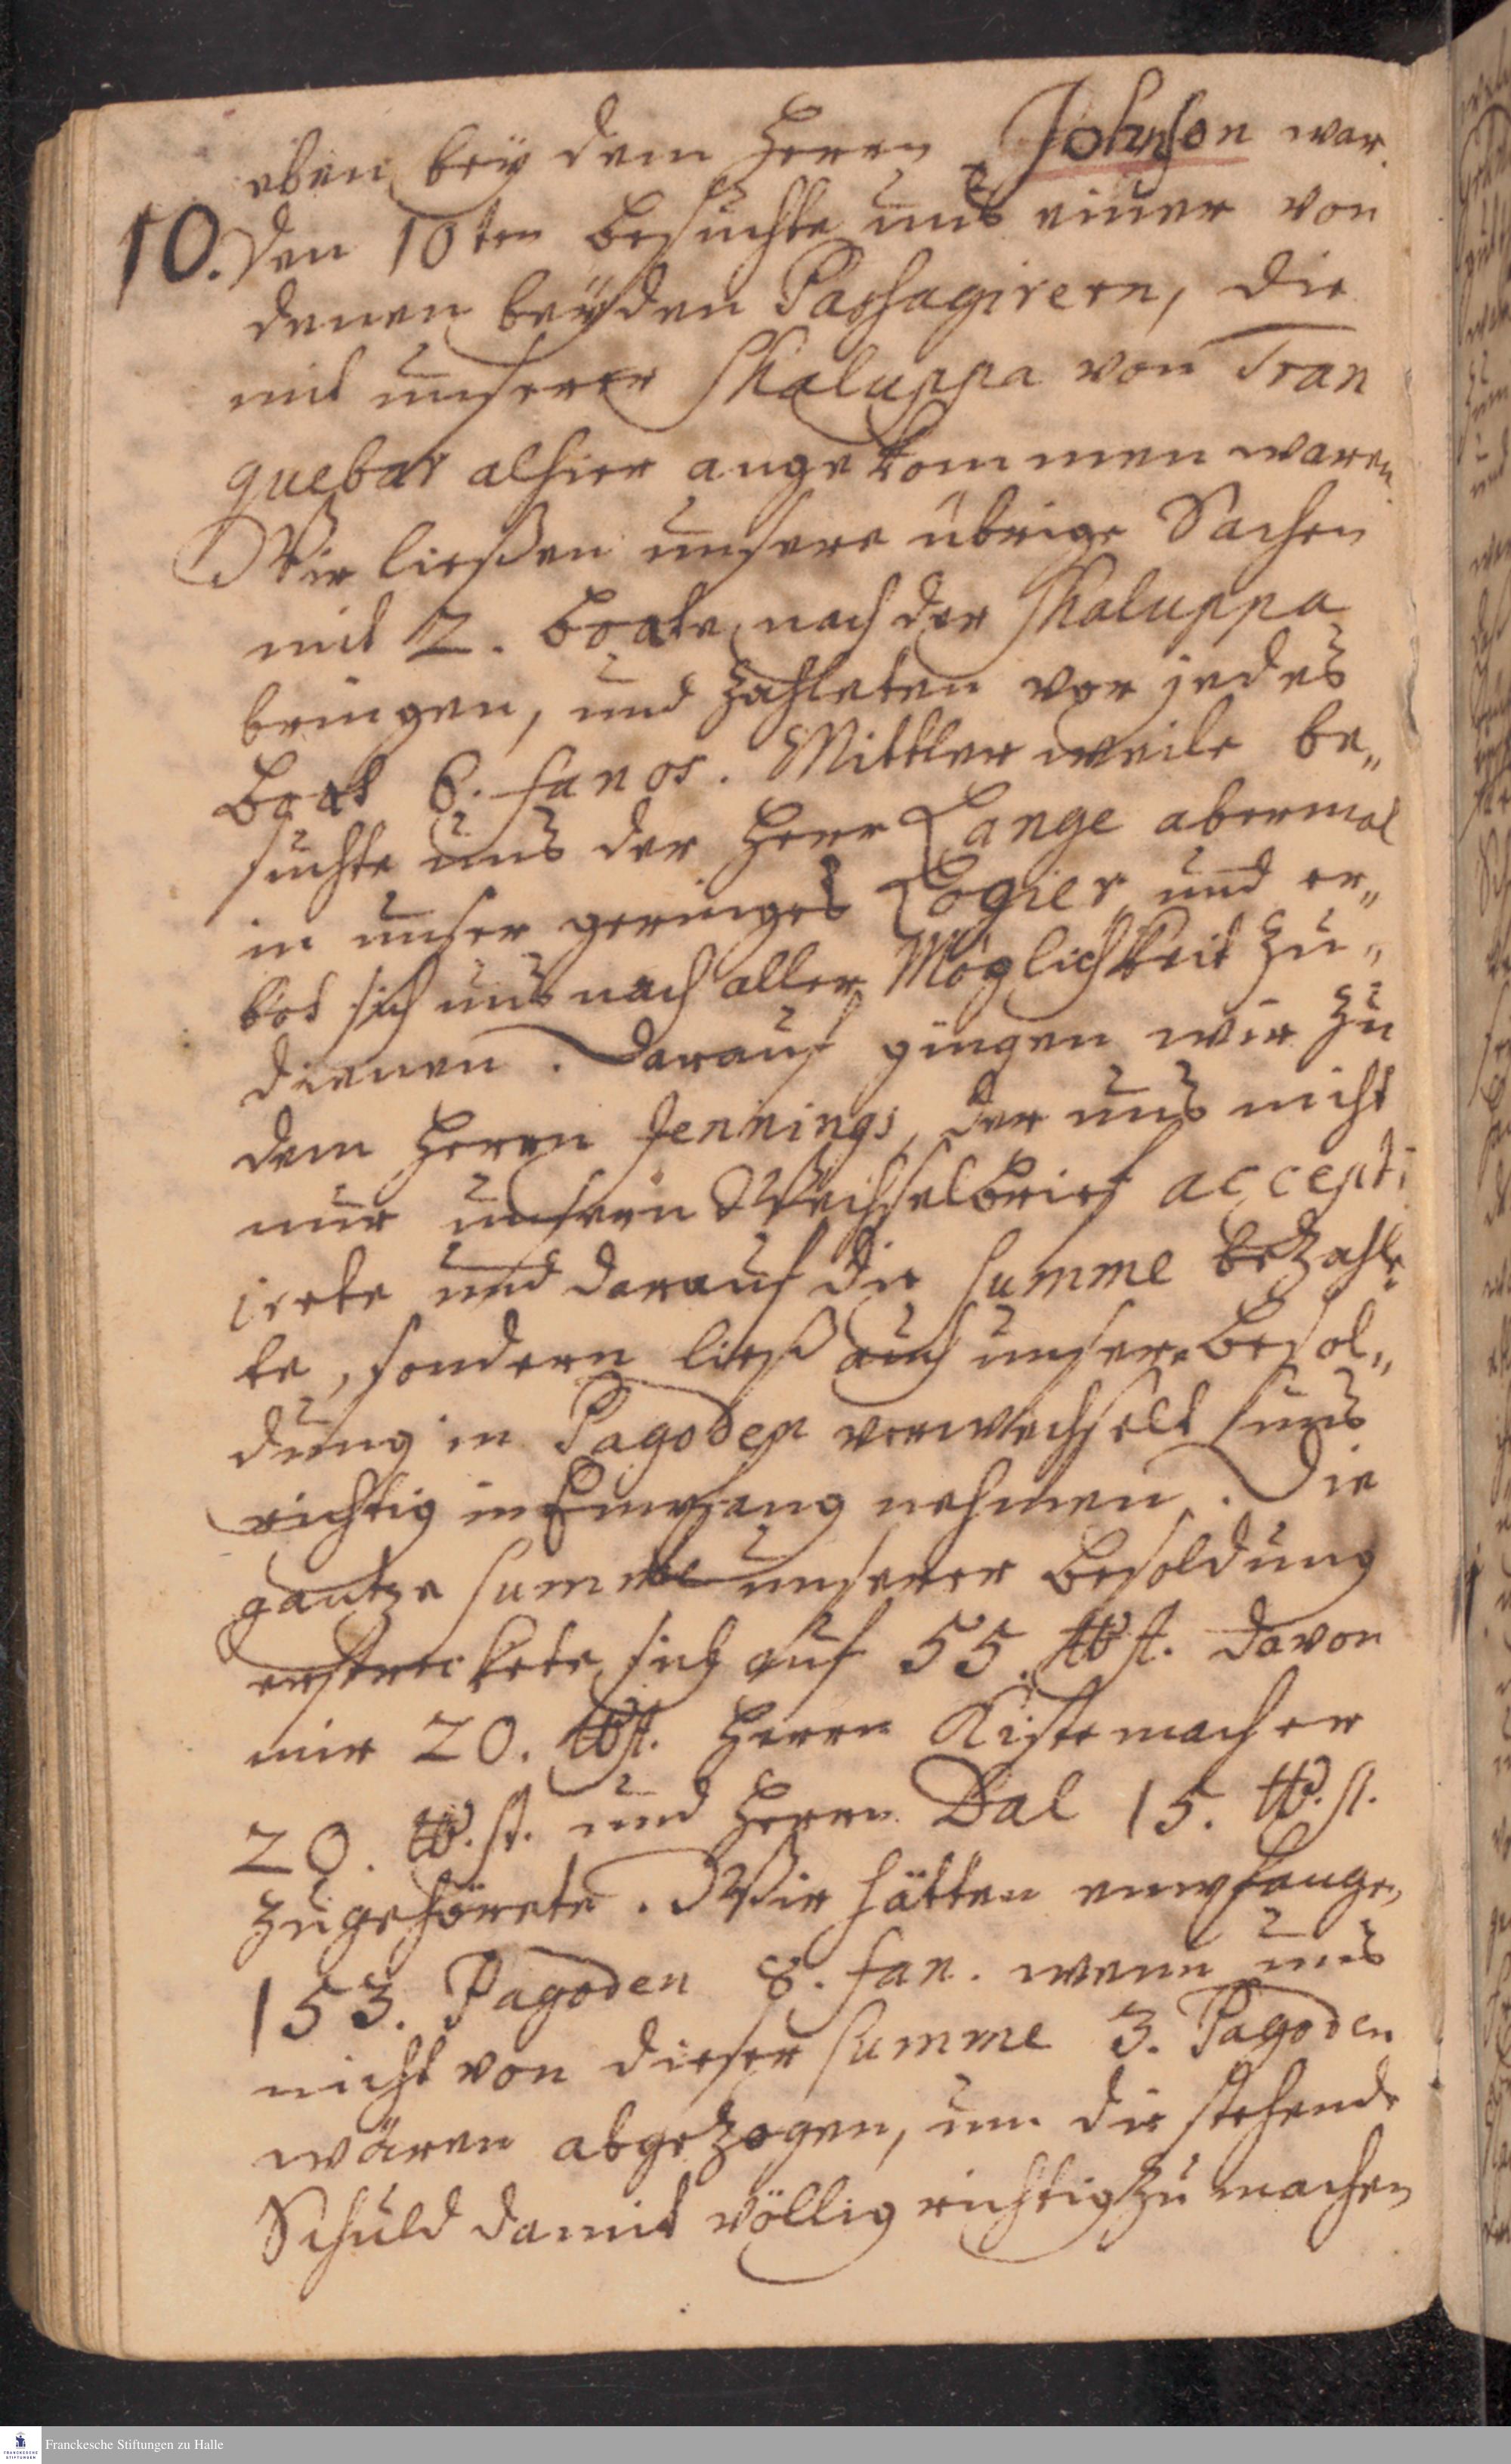 eben bey dem Herrn Johnson war.
10. Den 10ten besuchte uns einer von
denen beyden Passagirern, die
mit unserer Shaluppa von Tran
quebar alhier angekommen waren.
Wir ließen unsere übrige Sachen
mit 2. boate nach der Shaluppa
bringen, und zahleten vor jedes
boat 6. fanos. Mittlerweile be„
suchte uns der Herr Lange abermal
in unser geringes Logier und er„
bot sich uns nach aller Möglichkeit zu„
dienen. Darauf gingen wir zu
dem Herrn Jennings, der uns nicht
nur unsern Wechselbrief accepti
irete und darauf die summe bezahl„
te, sondern ließ auch unsere besol„
dung in Pagoden verwechselt uns
richtig in Empfang nehmen. Die
gantze summe unserer besoldung
erstreckete sich auf 55. ℔ st. davon
mir 20. ℔ st. Herrn Kistemacher
20. ℔. st. und Herrn Dal 15. ℔. st.
zugehörete. Wir hätten empfangen
153. Pagoden 8. fan. wenn uns
nicht von dieser summe 3. Pagoden
wären abgezogen, um die stehende
Schuld damit völlig richtig zu machen
Franckesche Stiftungen zu Halle